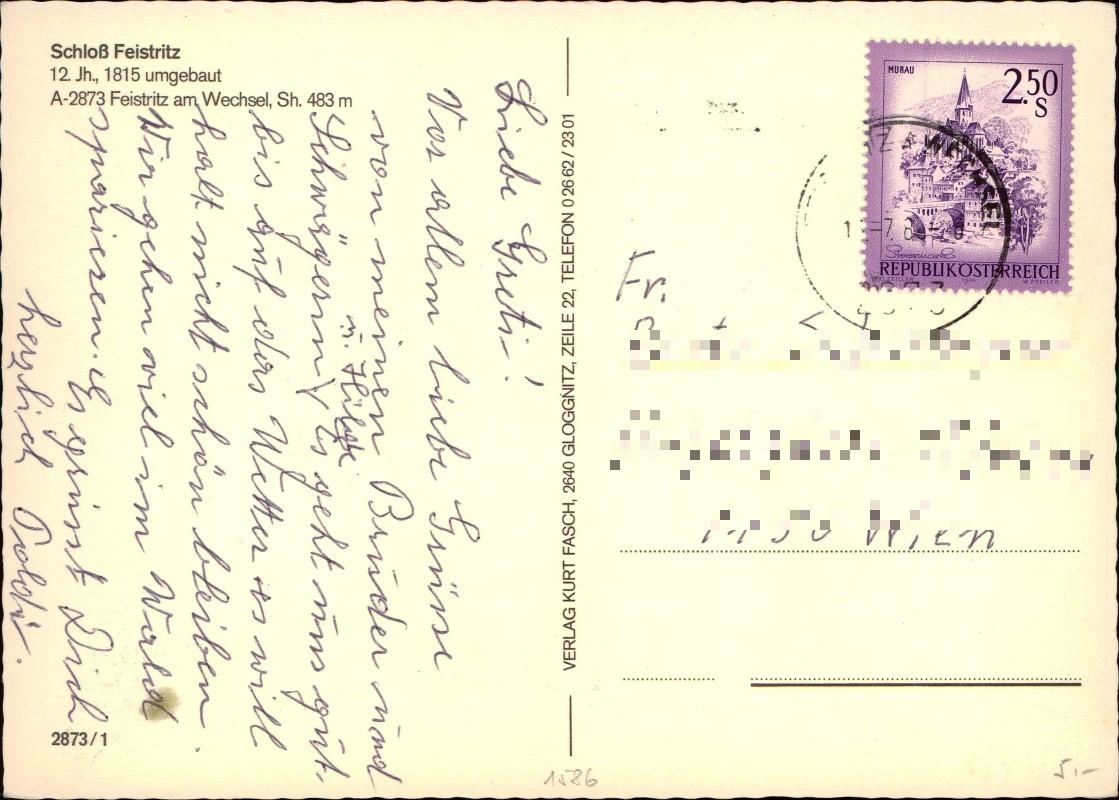 Schloß Feistritz
12. Jh., 1815 umgebaut
A-2873 Feistritz am Wechsel, Sh. 483 m
Liebe Greti!
Vor allem liebe Grüsse
von meinem Bruder und
Schwägerin
u. Helga
Es geht uns gut
bis auf das Wetter es will
halt nicht schön bleiben.
Wir gehen viel im Wald
spazieren. Es grüsst Dich
herzlich Poldi.
2873/1
VERLAG KURT FASCH, 2640 GLOGGNITZ, ZEILE 22, TELEFON 0 26 62 / 23 01
MURAU
2.50
S
Steiermark
REPUBLIK ÖSTERREICH
WECHSEL
Fr.
WIEN
1586
5,-